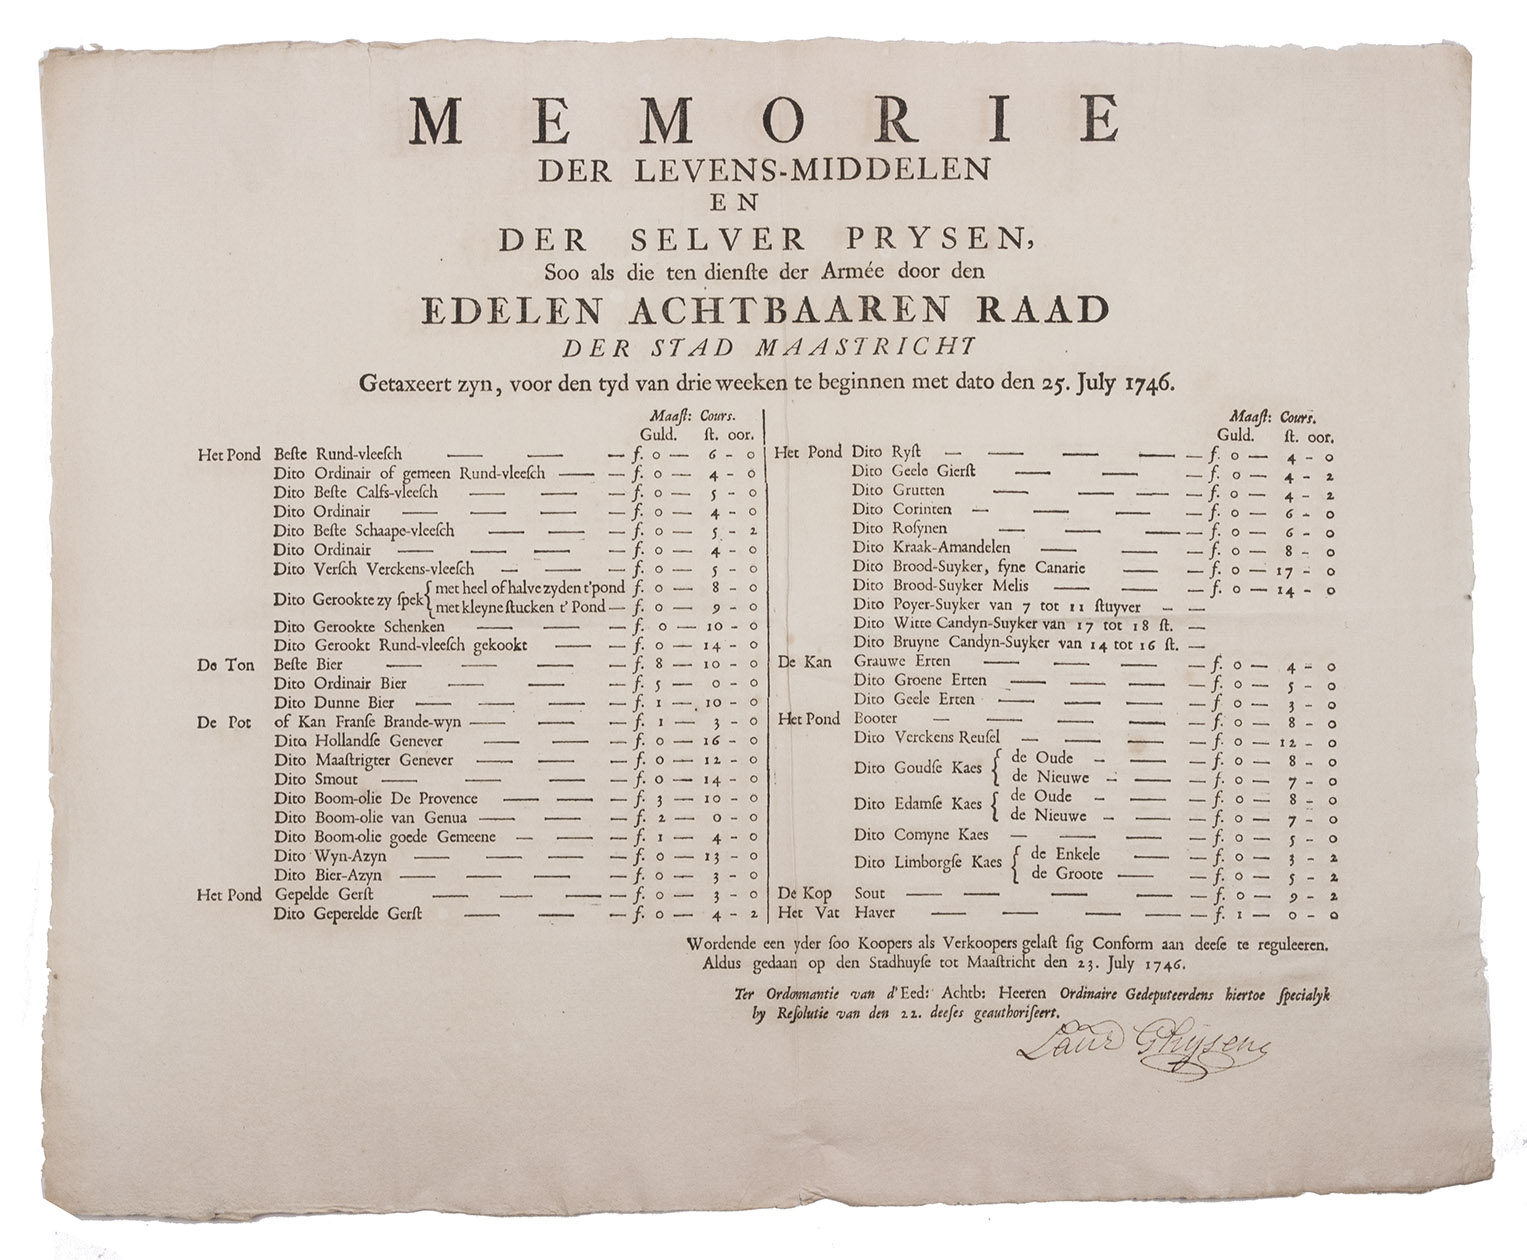 MEMORIE
DER LEVENS-MIDDELEN
EN
DER SELVER PRYSEN,
Soo als die ten dienſte der Armée door den
EDELEN ACHTBAAREN RAAD
DER STAD MAASTRICHT
Getaxeert zyn, voor den tyd van drie weeken te beginnen met dato den 25. July 1746.
Maaſt: Cours.
Guld. ſt. oor.
Het Pond Beſte Rund-vleeſch — — — f. 0 — 6 - 0
Dito Ordinair of gemeen Rund-vleeſch — — f. 0 — 4 - 0
Dito Beſte Calfs-vleeſch — — — f. 0 — 5 - 0
Dito Ordinair — — — — f. 0 — 4 - 0
Dito Beſte Schaape-vleeſch — — — f. 0 — 5 - 2
Dito Ordinair — — — — f. 0 — 4 - 0
Dito Verſch Verckens-vleeſch — — — f. 0 — 5 - 0
Dito Gerookte zy ſpek { met heel of halve zyden t'pond f. 0 — 8 - 0
met kleyne ſtucken t' Pond — f. 0 — 9 - 0
Dito Gerookte Schenken — — — f. 0 — 10 - 0
Dito Gerookt Rund-vleeſch gekookt — — f. 0 — 14 - 0
De Ton Beſte Bier — — — — f. 8 — 10 - 0
Dito Ordinair Bier — — — f. 5 — 0 - 0
Dito Dunne Bier — — — — f. 1 — 10 - 0
De Pot of Kan Franſe Brande-wyn — — — f. 1 — 3 - 0
Dito Hollandſe Genever — — — f. 0 — 16 - 0
Dito Maaſtrigter Genever — — — f. 0 — 12 - 0
Dito Smout — — — — f. 0 — 14 - 0
Dito Boom-olie De Provence — — — f. 3 — 10 - 0
Dito Boom-olie van Genua — — — f. 2 — 0 - 0
Dito Boom-olie goede Gemeene — — — f. 1 — 4 - 0
Dito Wyn-Azyn — — — — f. 0 — 13 - 0
Dito Bier-Azyn — — — — f. 0 — 3 - 0
Het Pond Gepelde Gerſt — — — — f. 0 — 3 - 0
Dito Geperelde Gerſt — — — f. 0 — 4 - 2
Maaſt: Cours.
Guld. ſt. oor.
Het Pond Dito Ryſt — — — — — f. 0 — 4 - 0
Dito Geele Gierſt — — — — f. 0 — 4 - 2
Dito Grutten — — — — f. 0 — 4 - 2
Dito Corinten — — — — — f. 0 — 6 - 0
Dito Roſynen — — — f. 0 — 6 - 0
Dito Kraak-Amandelen — — — f. 0 — 8 - 0
Dito Brood-Suyker, fyne Canarie — — f. 0 — 17 - 0
Dito Brood-Suyker Melis — — — f. 0 — 14 - 0
Dito Poyer-Suyker van 7 tot 11 ſtuyver — —
Dito Witte Candyn-Suyker van 17 tot 18 ſt. —
Dito Bruyne Candyn-Suyker van 14 tot 16 ſt. —
De Kan Grauwe Erten — — — — f. 0 — 4 - 0
Dito Groene Erten — — — f. 0 — 5 - 0
Dito Geele Erten — — — — f. 0 — 3 - 0
Het Pond Booter — — — — — f. 0 — 8 - 0
Dito Verckens Reuſel — — — — f. 0 — 12 - 0
Dito Goudſe Kaes { de Oude — — — f. 0 — 8 - 0
de Nieuwe — — — f. 0 — 7 - 0
Dito Edamſe Kaes { de Oude — — — f. 0 — 8 - 0
de Nieuwe — — — f. 0 — 7 - 0
Dito Comyne Kaes — — — — f. 0 — 5 - 0
Dito Limborgſe Kaes { de Enkele — — f. 0 — 3 - 2
de Groote — — f. 0 — 5 - 2
De Kop Sout — — — — — f. 0 — 9 - 2
Het Vat Haver — — — — — f. 1 — 0 - 0
Wordende een yder ſoo Koopers als Verkoopers gelaſt ſig Conform aan deeſe te reguleeren.
Aldus gedaan op den Stadhuyſe tot Maaſtricht den 23. July 1746.
Ter Ordonnantie van d'Eed: Achtb: Heeren Ordinaire Gedeputeerdens hiertoe ſpecialyk
by Reſolutie van den 22. deeſes geauthoriſeert.
Laur Ghijsens